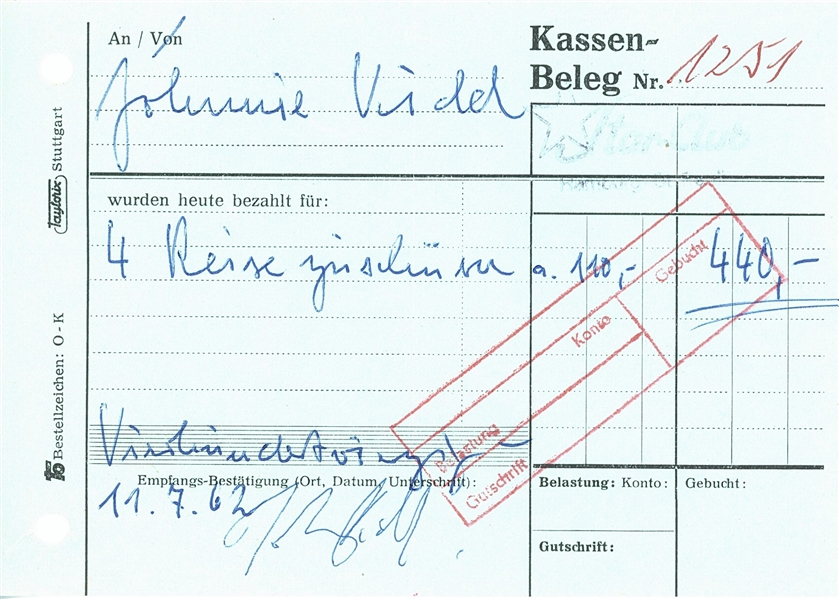 An / Von
Kassen-
Beleg Nr. 1251
Johnnie
Star-Club
wurden heute bezahlt für:
4 Reise a. 110,- 440,-
Gebucht
Konto
Belastung
Gutschrift
Empfangs-Bestätigung (Ort, Datum, Unterschrift):
11.7.62
Belastung: Konto: Gebucht:
Gutschrift:
Taylorix Stuttgart
Bestellzeichen: O - K